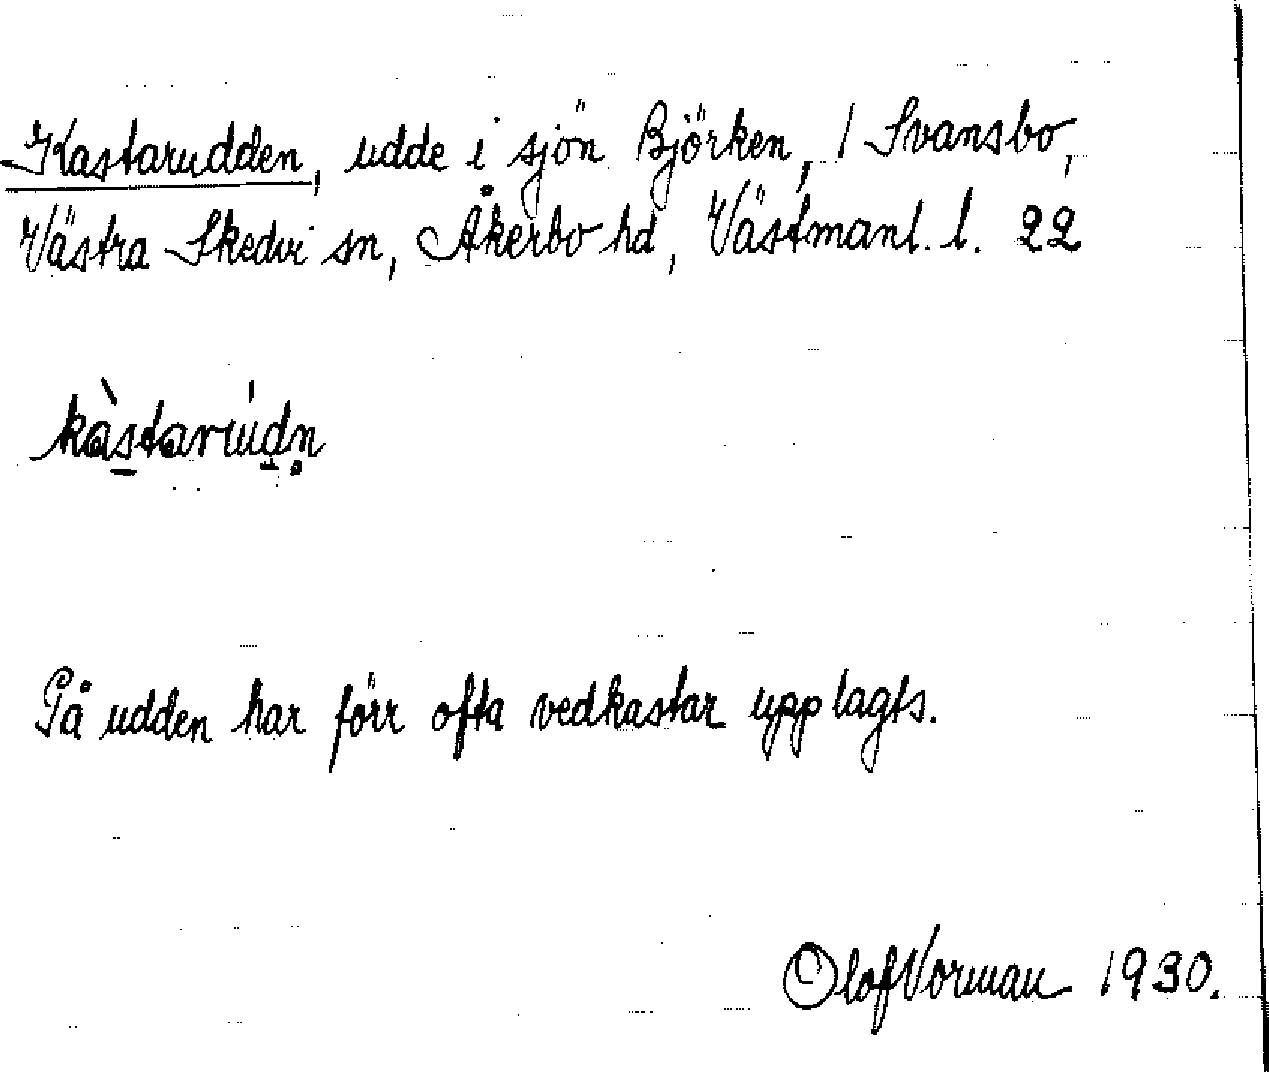 Kastarudden, udde i sjön Björken, / Svansbo,
Västra Skedvi sn, Åkerbo hd, Västmanl. l. 22
kàstarúdn̥
På udden har förr ofta vedkastar upplagts.
Olof Vorman 1930.